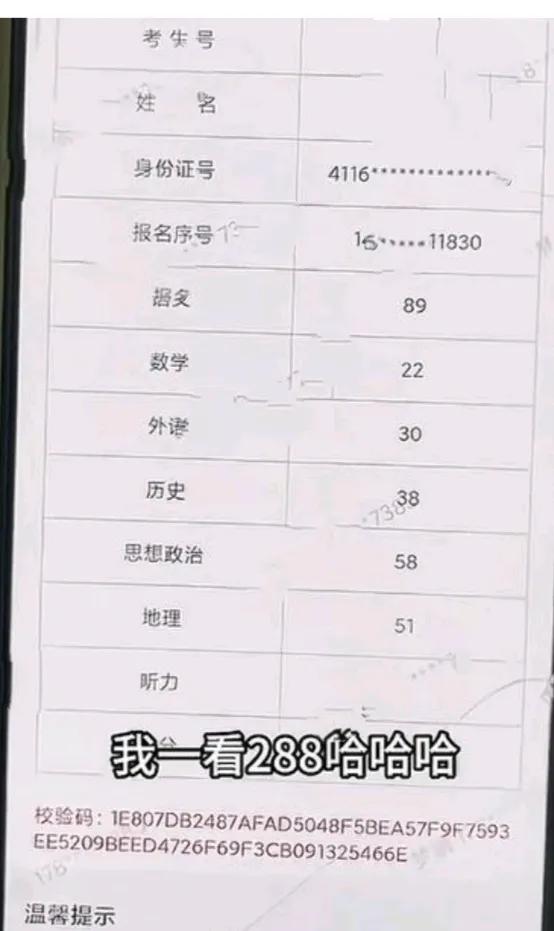 考生号
姓 名
身份证号 4116**************
报名序号 16*****11830
语文 89
数学 22
外语 30
历史 38
思想政治 58
地理 51
听力
分
我一看288哈哈哈
校验码：1E807DB2487AFAD5048F5BEA57F9F7593
EE5209BEED4726F69F3CB091325466E
温馨提示